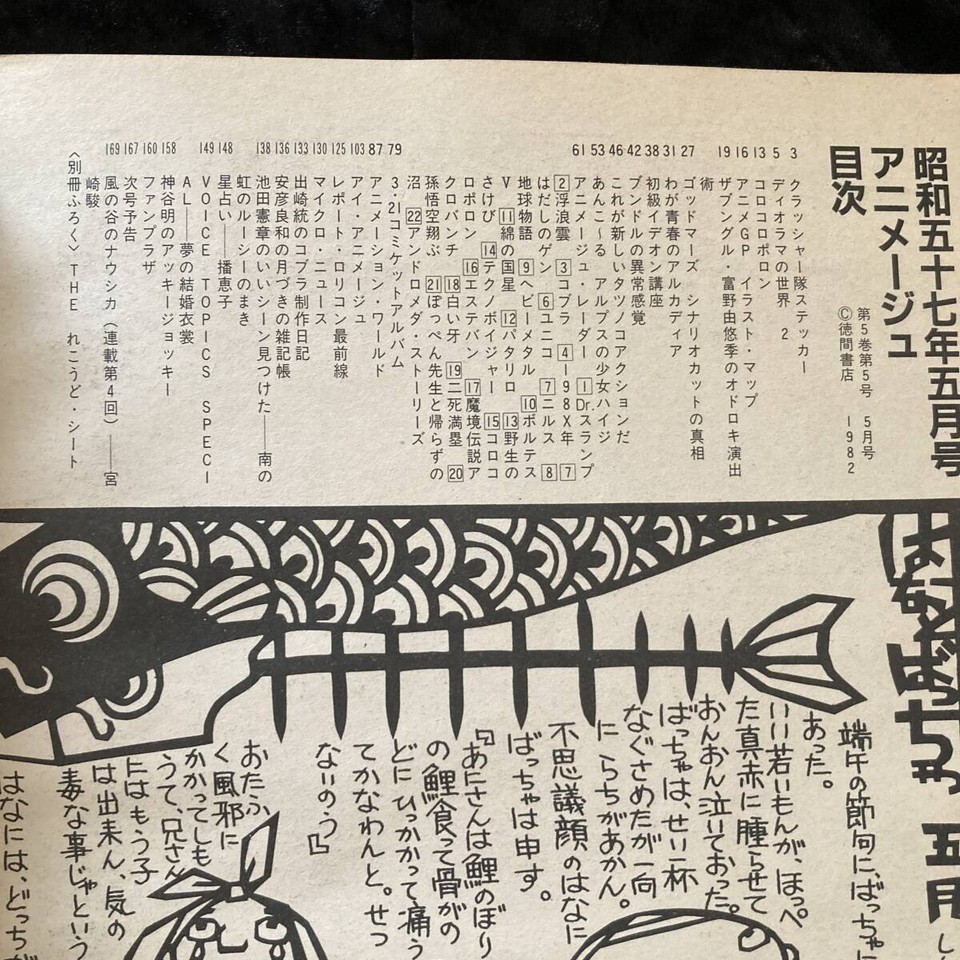 昭和五十七年五月号
アニメージュ
目次
第5巻第5号 5月号
©徳間書店 1982
169 167 160 158 149 148 138 136 133 130 125 103 87 79 61 53 46 42 38 31 27 19 16 13 5 3
クラッシャー隊ステッカー
ディオラマの世界 2
コロコロポロン
アニメGP イラスト・マップ
ザブングル・富野由悠季のオドロキ演出
術
ゴッドマーズ シナリオカットの真相
わが青春のアルカディア
初級イデオン講座
ブンドルの異常感覚
これが新しいタツノコアクションだ
あんこ〜る アルプスの少女ハイジ
アニメージュ・レーダー 1Dr.スランプ
2浮浪雲 3コブラ 4198X年 7
はだしのゲン 6ユニコ 7ニルス 8
地球物語 9ヘビーメタル 10ボルテス
V 11綿の国星 12パタリロ 13野生の
さけび 14テクノボイジャー 15コロコ
ロポロン 16エステバン 17魔境伝説ア
クロバンチ 18白い牙 19二死満塁 20
孫悟空翔ぶ 21ぽっぺん先生と帰らずの
沼 22アンドロメダ・ストーリーズ
3・21コミケットアルバム
アニメーション・ワールド
アイ・アニメージュ
レポート・ロリコン最前線
マイクロ・ニュース
出崎統のコブラ制作日記
安彦良和の月づきの雑記帳
池田憲章のいいシーン見つけた——南の
虹のルーシーのまき
星占い——播恵子
VOICE TOPICS SPECI
AL——夢の結婚衣裳
神谷明のアッキージョッキー
ファンプラザ
次号予告
風の谷のナウシカ（連載第4回）——宮
崎駿
〈別冊ふろく〉THE れこうど・シート
はなとばっちゃ 五月
端午の節句に、ばっちゃに
あった。
いい若いもんが、ほっぺ
た真赤に腫らせて
おんおん泣いておった。
ばっちゃは、せい一杯
なぐさめたが一向
にらちがあかん。
不思議顔のはなに
ばっちゃは申す。
『あにさんは鯉のぼり
の鯉食って骨がの
どにひっかかって痛う
てかなわんと。せつ
ないのう』
おたふ
く風邪に
かかってしも
うて、兄さん
にはもう子
は出来ん、気の
毒な事じゃという
はなには、どっちが